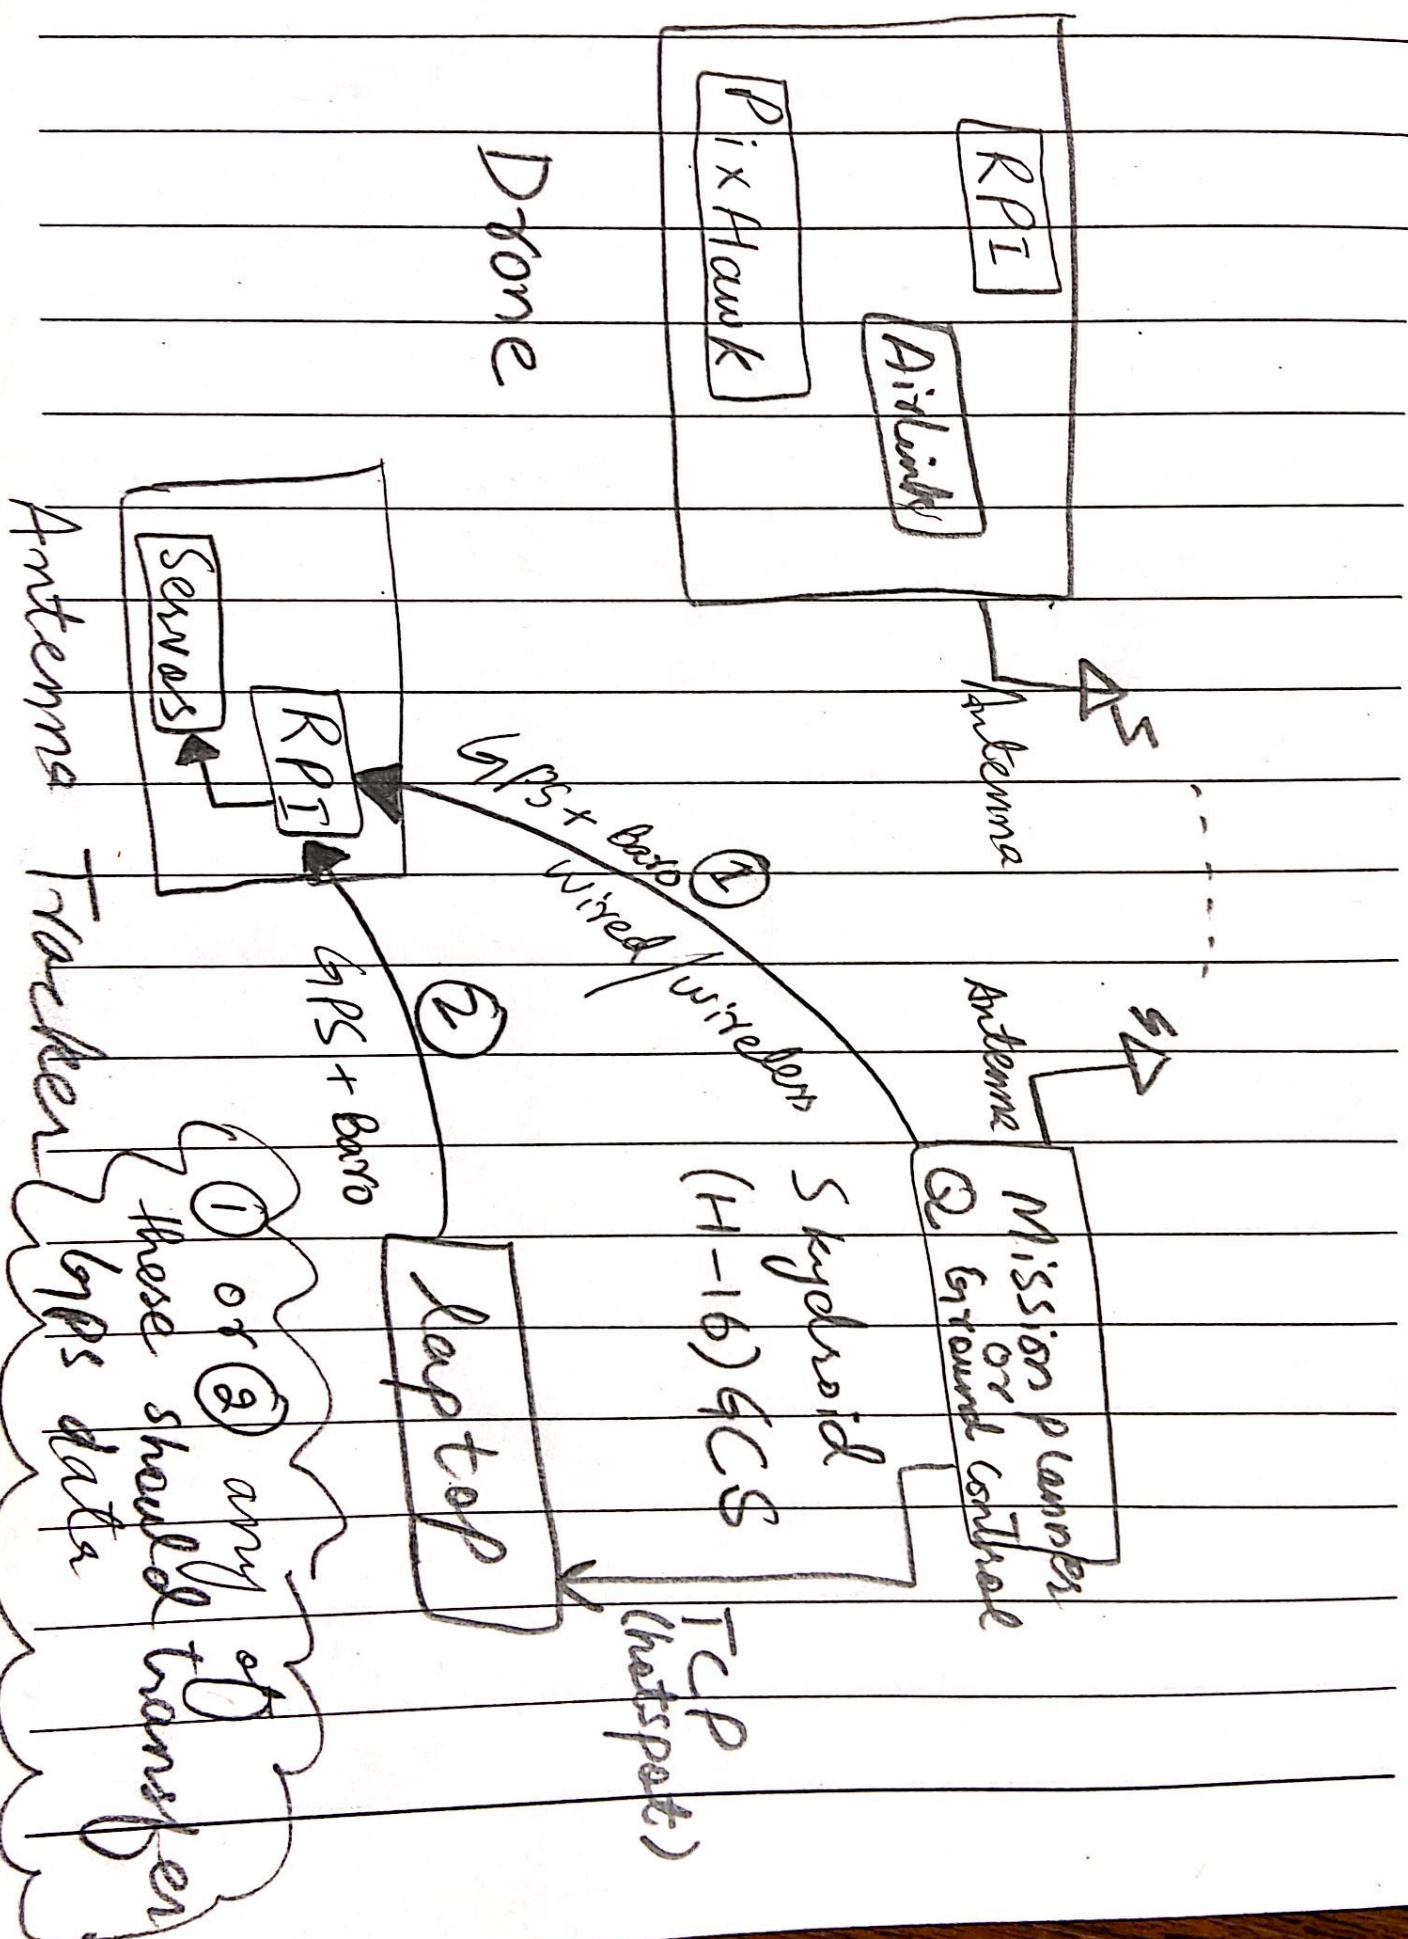 RPI
Airlink
PixHawk
Drone
S
Antenna
S
Antenna
Mission planner
or
Q Ground Control
Skydroid
(H-16) GCS
TCP
(hotspot)
1
GPS + Baro
wired/wireless
2
GPS + Baro
Laptop
RPI
Servos
Antenna Tracker
1 or 2 any of
these should transfer
GPS data